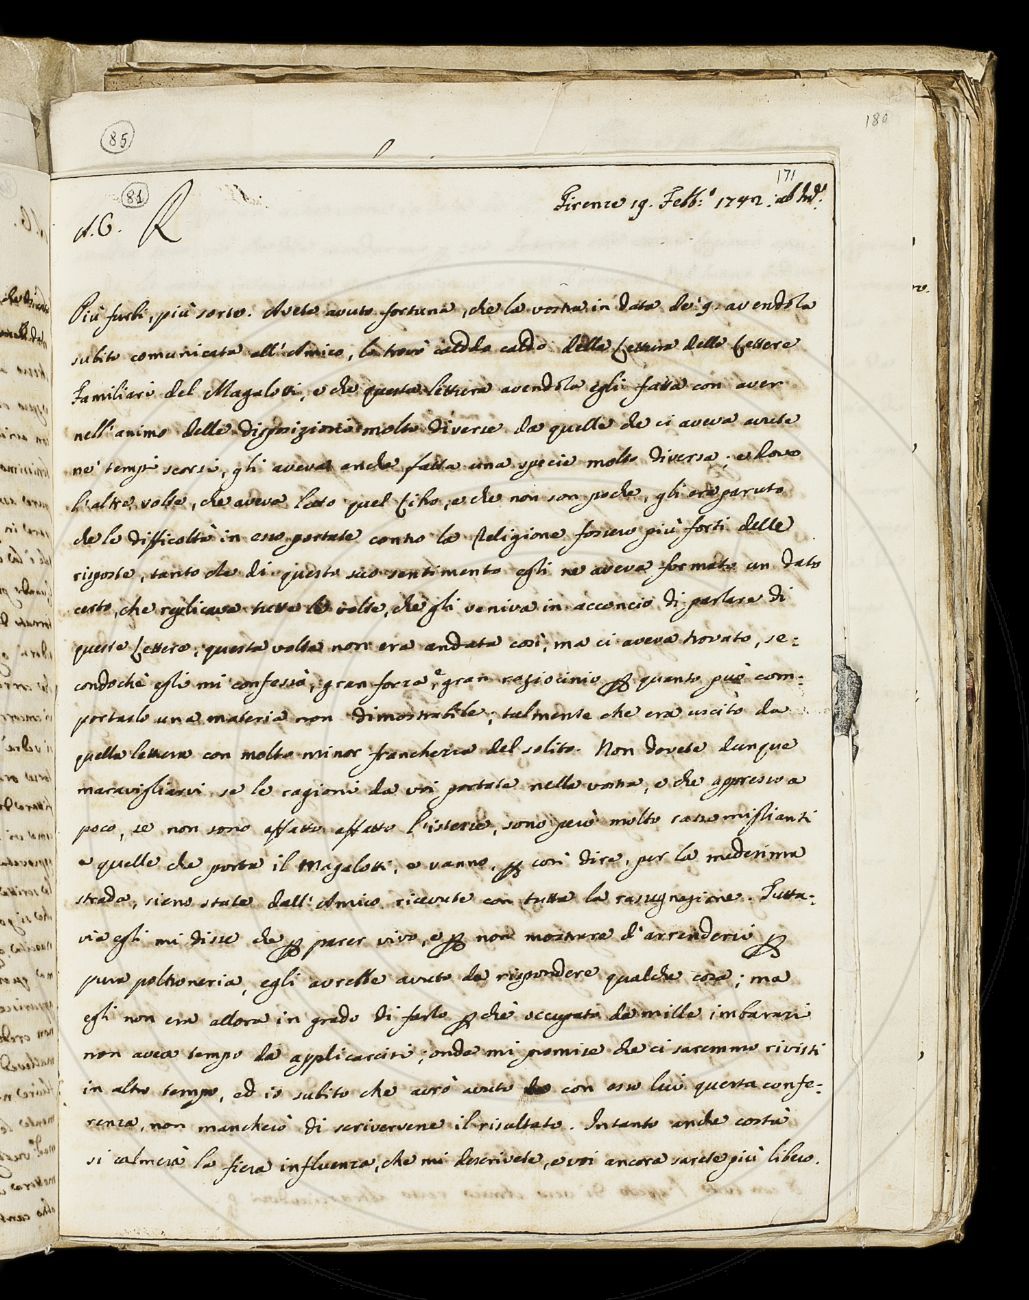 186
85
171
81
Firenze 19. Febb.º 1742. ab Inc.
A. C. R
Più furbi, più sorte. Avete avuto fortuna, che la vostra in data de' 9. avendola
subito comunicata all'Amico, lo trovò caldo caldo della Lettura delle Lettere
Familiari del Magalotti, e che questa lettura avendola egli fatta con aver
nell'animo delle disposizioni molto diverse da quelle che ci aveva avute
ne' tempi scorsi, gli aveva anche fatta una specie molto diversa; e dove
l'altre volte, che aveva letto quel Libro, e che non son poche, gli era paruto
che le difficoltà in esso portate contro la Religione fossero più forti delle
risposte, tanto che di questo suo sentimento egli ne aveva formato un dato
certo, che replicava tutte le volte, che gli veniva in acconcio di parlare di
queste Lettere; questa volta non era andata così, ma ci aveva trovato, se=
condochè egli mi confessò, gran forza, e gran raziocinio p quanto può com=
portarlo una materia non dimostrabile; talmente che era uscito da
quella lettura con molto minor franchezza del solito. Non dovete dunque
maravigliarvi se le ragioni da voi portate nella vostra, e che appresso a
poco, se non sono affatto affatto l'istesse, sono però molto rassomiglianti
a quelle che porta il Magalotti, e vanno, p così dire, per la medesima
strada, sieno state dall'Amico ricevute con tutta la rassegnazione. Tutta=
via egli mi disse che p parer vivo, e p non mostrare d'arrendersi p
pura poltroneria, egli avrebbe avuto da rispondere qualche cosa; ma
egli non era allora in grado di farlo pchè occupato da mille imbarazzi
non aveva tempo da applicarcisi; onde mi promise che ci saremmo rivisti
in altro tempo, ed io subito che avrò avuto con esso lui questa confe=
renza, non mancherò di scrivervene il risultato. Intanto anche costà
si calmerà la fiera influenza, che mi descrivete, e voi ancora sarete più libero.